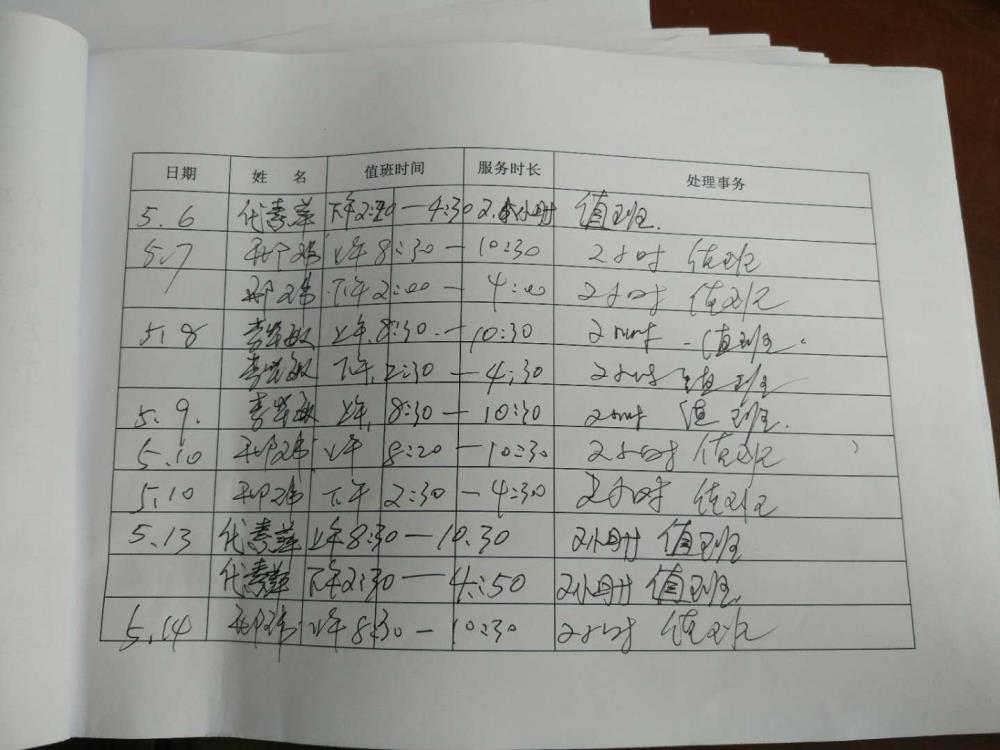 日期 姓 名 值班时间 服务时长 处理事务
5.6 代素萍 下午2:20—4:30 2.小时 值班.
5.7 上午8:30—10:30 2小时 值班
下午2:00—4:00 2小时 值班
5.8 上午.8:30.—10:30 2小时 值班.
下午.2:30—4:30 2小时 值班
5.9. 上午.8:30—10:30 2小时 值班.
5.10 上午 8:20—10:30 2小时 值班
5.10 下午 2:30—4:30 2小时 值班
5.13 代素萍 上午8:30—10.30 2小时 值班
代素萍 下午2:30—4:50 2小时 值班.
5.14 上午8:30—10:30 2小时 值班